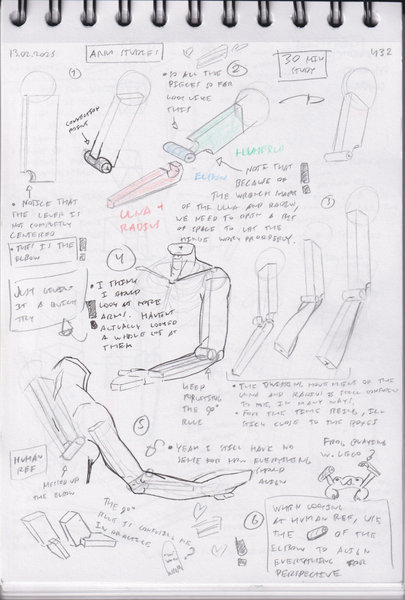 13.02.2025
ARM STUDIES
30 MIN
STUDY
432
1
CONNECTION
POINT
• SO ALL THE
PIECES SO FAR
LOOK LIKE
THIS
2
HUMERUS
ELBOW
ULNA +
RADIUS
NOTE THAT
BECAUSE OF
THE WRENCH SHAPE
OF THE ULNA AND RADIUS,
WE NEED TO OPEN A BIT
OF SPACE TO LET THE
HINGE WORK PROPERLY.
• NOTICE THAT
THE LEVER IS
NOT COMPLETELY
CENTERED
• THIS IS THE
ELBOW
3
4
• I THINK
I SHOULD
LOOK AT MORE
ARMS. HAVENT
ACTUALLY LOOKED
A WHOLE LOT AT
THEM
IS A QUICK
TRY
KEEP
THE 90°
RULE
• THE MOVEMENT OF THE
ULNA AND RADIUS IS STILL
TO ME, IN MANY WAYS.
• FOR THE TIME BEING, I'LL
STICK CLOSE TO THE
5
• YEAH I STILL HAVE NO
HOW EVERYTHING
SHOULD
ALIGN
FROG PLAYING
W. LEGO
HUMAN
REF
MESSED UP
THE ELBOW
THE 90°
RULE IS ME
IN PRACTICE
6
WHEN LOOKING
AT HUMAN REF, USE
THE OF THE
ELBOW TO ALIGN
EVERYTHING FOR
PERSPECTIVE